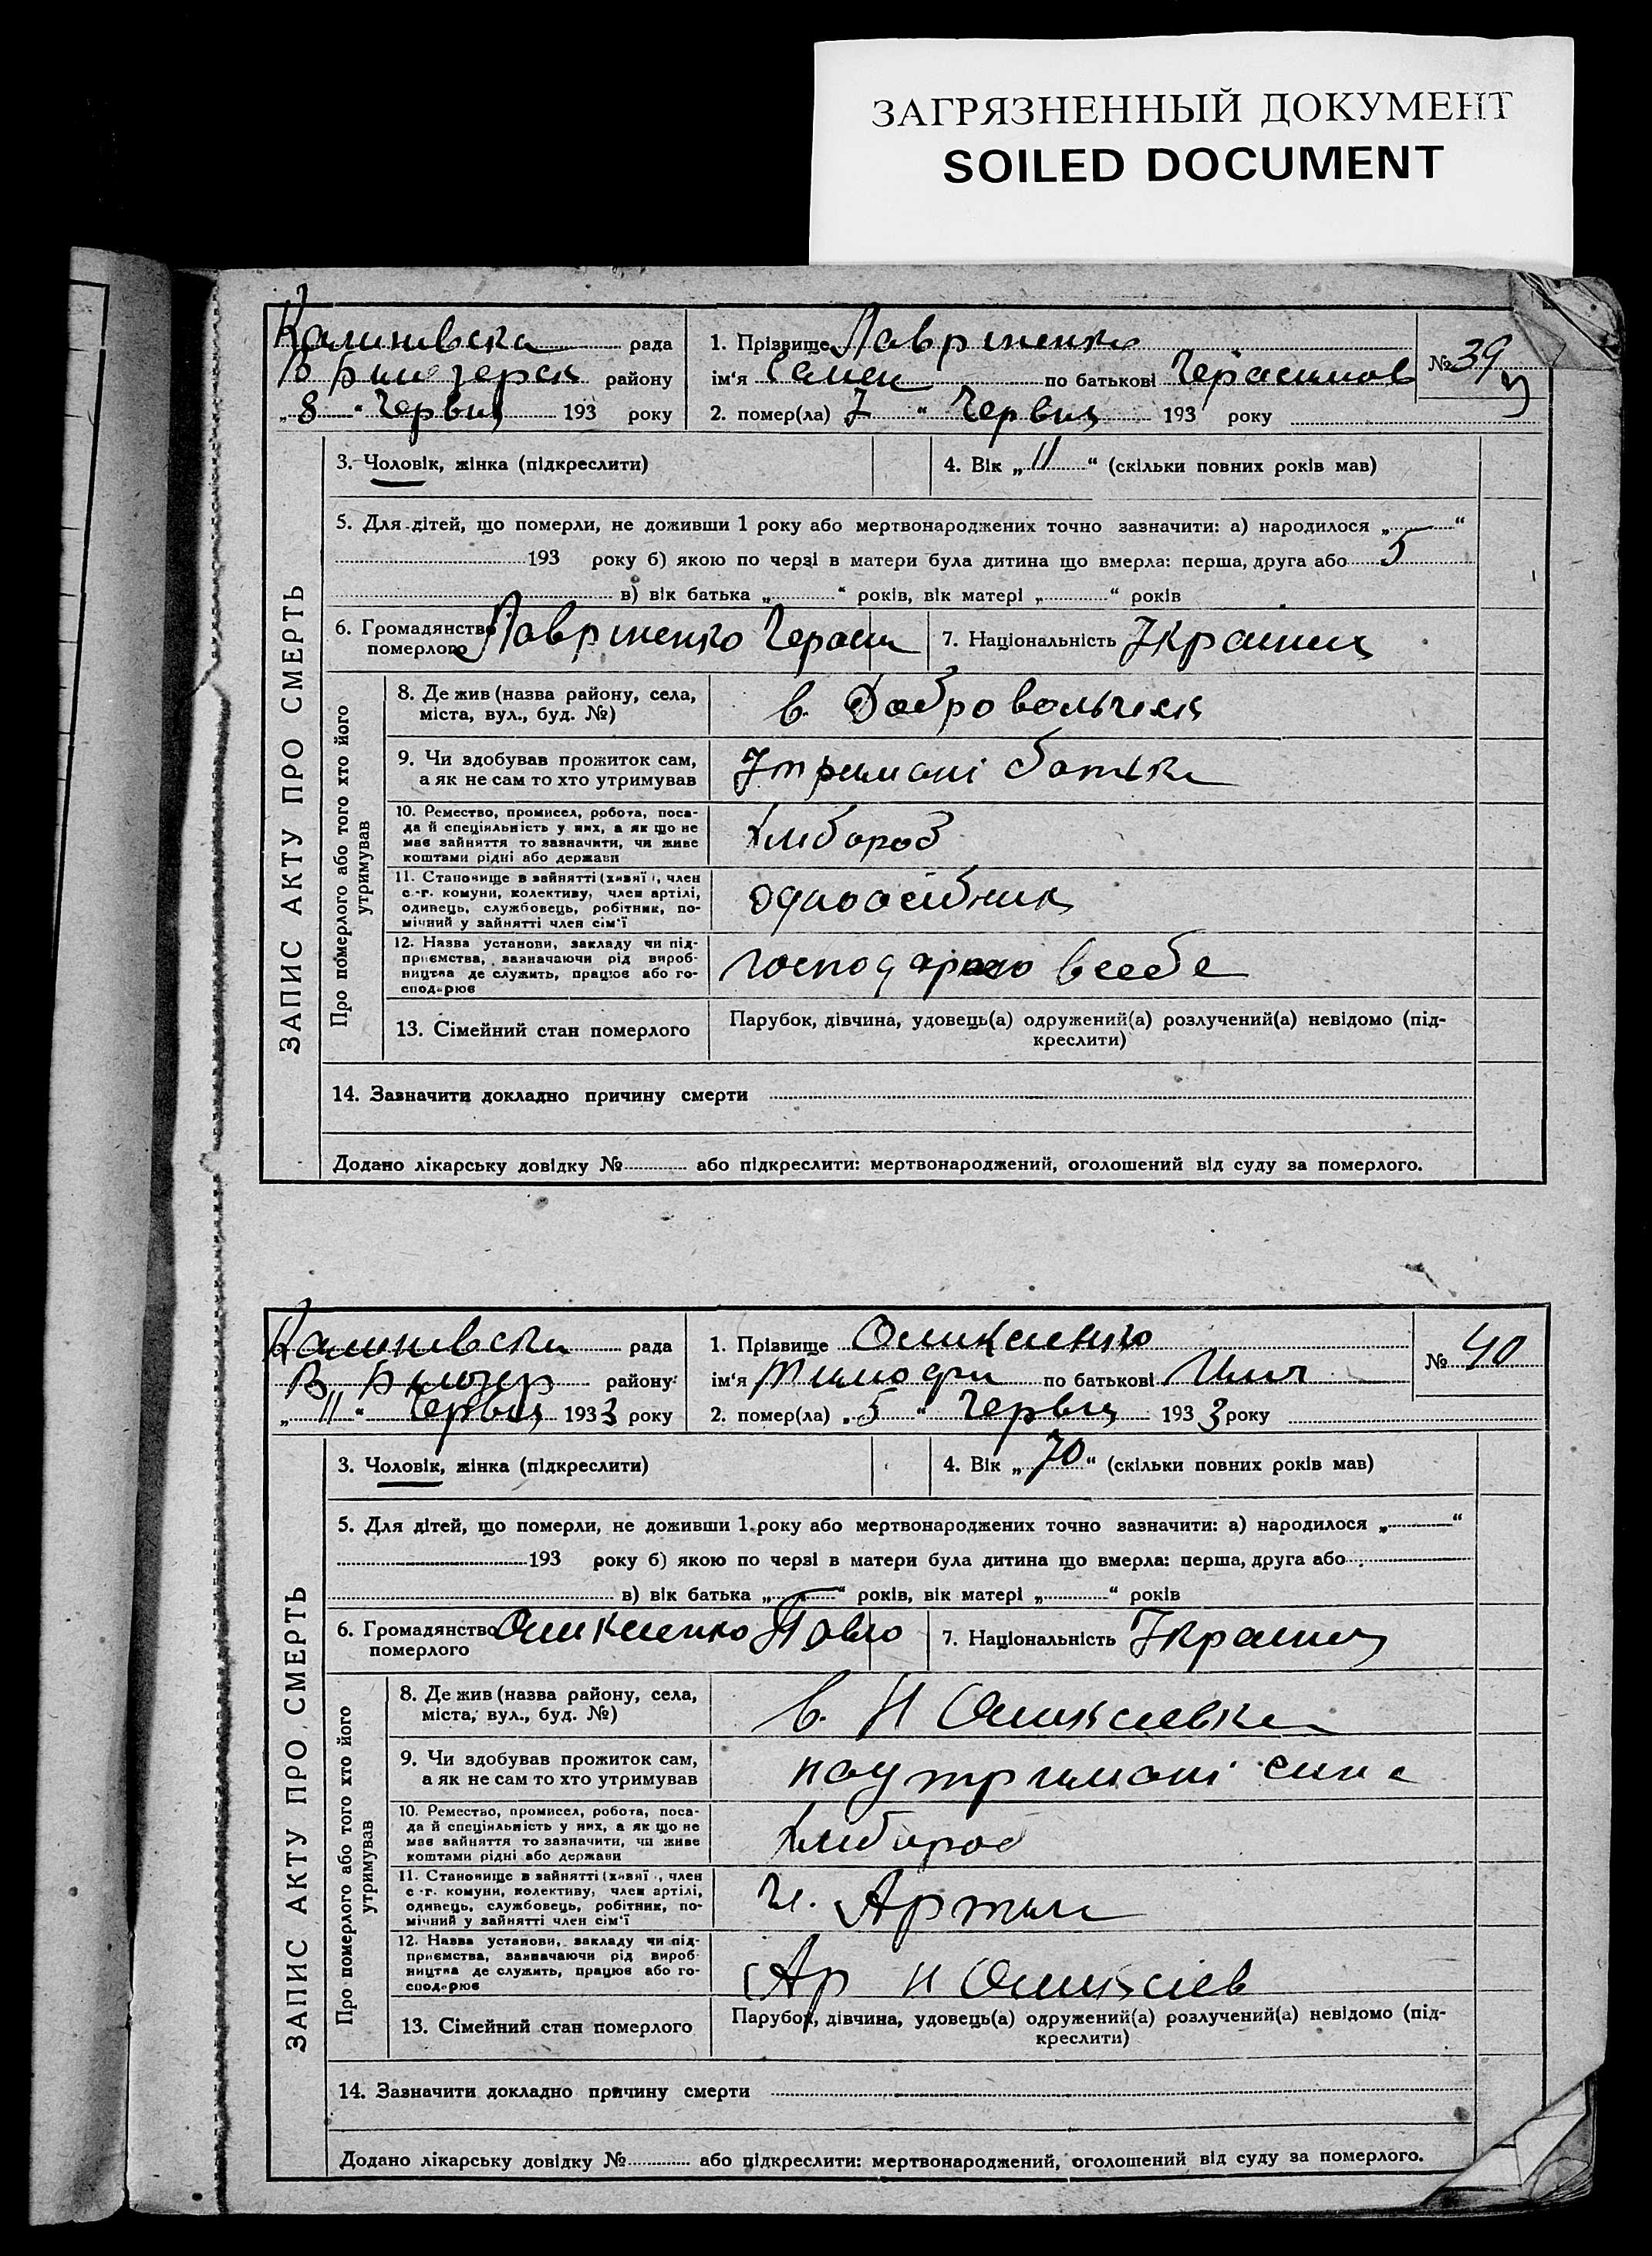 ЗАГРЯЗНЕННЫЙ ДОКУМЕНТ
SOILED DOCUMENT
Калинивска рада
В Билозерск району
„8“ Червця 193 року
1. Прізвище Лавриненко
ім'я Семен по батькові Черасимов
2. помер(ла) 7 “ Червця 193 року
№ 39
ЗАПИС АКТУ ПРО СМЕРТЬ
3. Чоловік, жінка (підкреслити)
4. Вік „11“ (скільки повних років мав)
5. Для дітей, що померли, не доживши 1 року або мертвонароджених точно зазначити: а) народилося „ “
193 року б) якою по черзі в матери була дитина що вмерла: перша, друга або 5
в) вік батька „ “ років, вік матері „ “ років
6. Громадянство померлого Лавриненко
7. Національність Украинец
Про померлого або того хто його утримував
8. Де жив (назва району, села,
міста, вул., буд. №)
в. Добровольчек
9. Чи здобував прожиток сам,
а як не сам то хто утримував
Утримані батька
10. Ремество, промисел, робота, поса-
да й спеціяльність у них, а як що не
має зайняття то зазначити, чи живе
коштами рідні або держави
хлибороб
11. Становище в зайнятті (хазяї), член
с.-г. комуни, колективу, член артілі,
одинець, службовець, робітник, по-
мічний у зайнятті член сім'ї
одноосібник
12. Назва установи, закладу чи під-
приємства, зазначаючи рід вироб-
ництва де служить, працює або го-
сподарює
господарсто в себе
13. Сімейний стан померлого
Парубок, дівчина, удовець(а) одружений(а) розлучений(а) невідомо (під-
креслити)
14. Зазначити докладно причину смерти
Додано лікарську довідку № або підкреслити: мертвонароджений, оголошений від суду за померлого.
Калинивска рада
В Билозер району
„11“ Червця 1933 року
1. Прізвище Оликсиенко
ім'я Тимофи по батькові
2. помер(ла) „5“ Червця 1933 року
№ 40
ЗАПИС АКТУ ПРО СМЕРТЬ
3. Чоловік, жінка (підкреслити)
4. Вік „70“ (скільки повних років мав)
5. Для дітей, що померли, не доживши 1 року або мертвонароджених точно зазначити: а) народилося „ “
193 року б) якою по черзі в матери була дитина що вмерла: перша, друга або
в) вік батька „ “ років, вік матері „ “ років
6. Громадянство померлого Оликсиенко Павло
7. Національність Украинец
Про померлого або того хто його утримував
8. Де жив (назва району, села,
міста, вул., буд. №)
в. Н Оликсиевка
9. Чи здобував прожиток сам,
а як не сам то хто утримував
на утримані сина
10. Ремество, промисел, робота, поса-
да й спеціяльність у них, а як що не
має зайняття то зазначити, чи живе
коштами рідні або держави
хлибороб
11. Становище в зайнятті (хазяї), член
с.-г. комуни, колективу, член артілі,
одинець, службовець, робітник, по-
мічний у зайнятті член сім'ї
Чл. Артили
12. Назва установи, закладу чи під-
приємства, зазначаючи рід вироб-
ництва де служить, працює або го-
сподарює
Ар Н Оликсиев
13. Сімейний стан померлого
Парубок, дівчина, удовець(а) одружений(а) розлучений(а) невідомо (під-
креслити)
14. Зазначити докладно причину смерти
Додано лікарську довідку № або підкреслити: мертвонароджений, оголошений від суду за померлого.